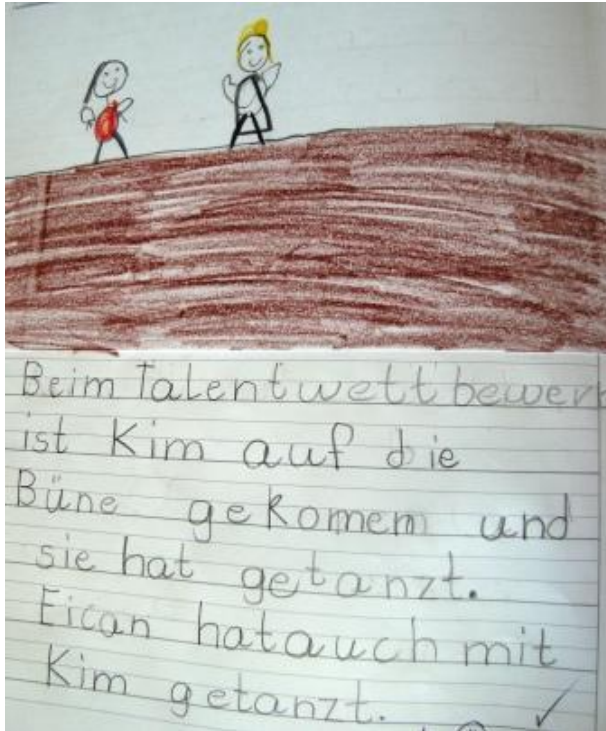 Beim Talentwettbewerb
ist Kim auf die
Büne gekomem und
sie hat getanzt.
Eican hat auch mit
Kim getanzt.